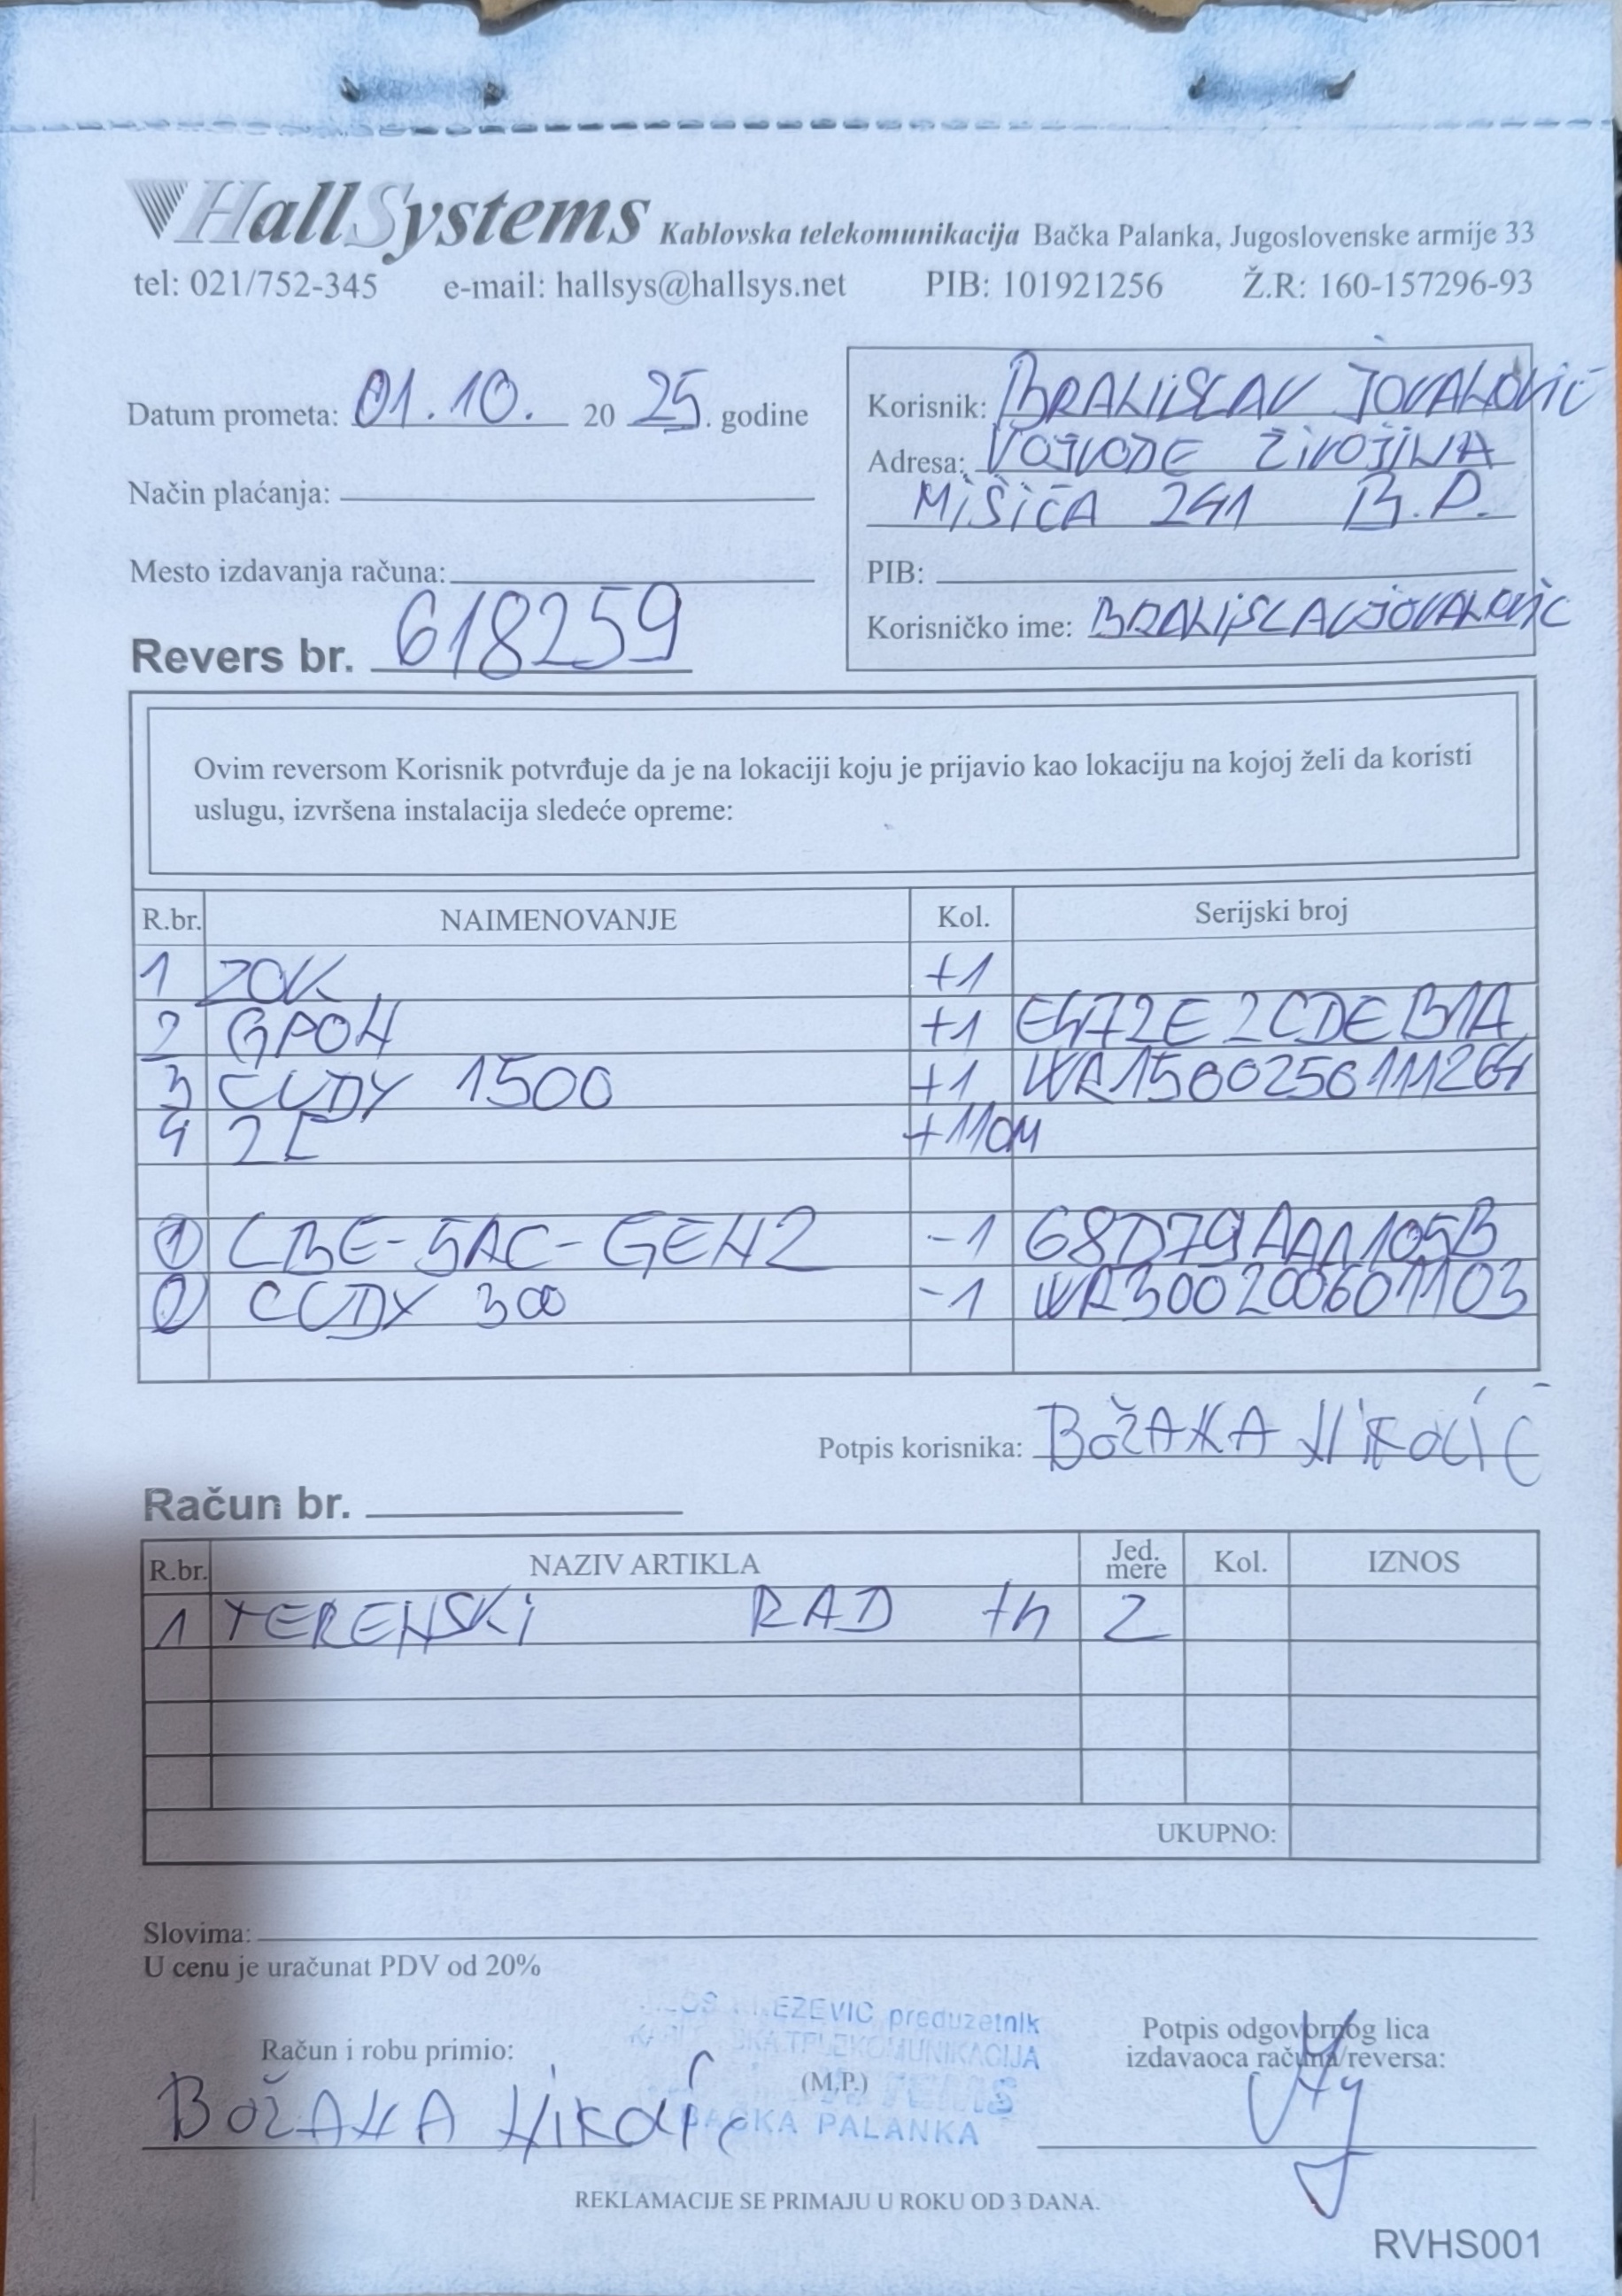 HallSystems Kablovska telekomunikacija Bačka Palanka, Jugoslovenske armije 33
tel: 021/752-345 e-mail: hallsys@hallsys.net PIB: 101921256 Ž.R: 160-157296-93
Datum prometa: 01.10. 20 25. godine
Način plaćanja:
Mesto izdavanja računa:
Revers br. 618259
Korisnik: BRANISLAV JOVANOVIĆ
Adresa: VOJVODE ŽIVOJINA
MIŠIĆA 241 B.P.
PIB:
Korisničko ime: BRANISLAVJOVANOVIC
Ovim reversom Korisnik potvrđuje da je na lokaciji koju je prijavio kao lokaciju na kojoj želi da koristi
uslugu, izvršena instalacija sledeće opreme:
R.br. NAIMENOVANJE Kol. Serijski broj
1 ZOK +1
2 GPON +1
3 CUDY 1500 +1 WR1500250111264
4 +110M
1 LBE-5AC-GEN2 -1
2 CUDY 300 -1 WR300200601103
Potpis korisnika: BOŽANA NIKOLIĆ
Račun br.
R.br. NAZIV ARTIKLA Jed. mere Kol. IZNOS
1 TERENSKI RAD th 2
UKUPNO:
Slovima:
U cenu je uračunat PDV od 20%
preduzetnik
TELEKOMUNIKACIJA
BAČKA PALANKA
Račun i robu primio:
BOŽANA NIKOLIĆ
(M.P.)
Potpis odgovornog lica
izdavaoca računa/reversa:
REKLAMACIJE SE PRIMAJU U ROKU OD 3 DANA.
RVHS001